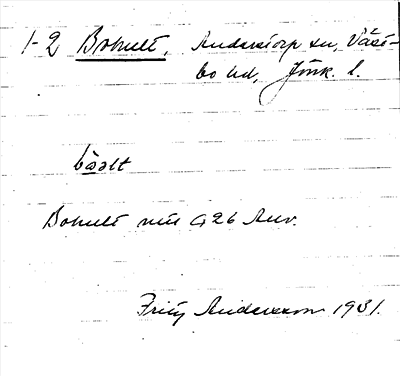 1-2 Bohult, Anderstorp sn, Väst-
bo hd, Jönk. l.
båat
Bohult
Fritz Andersson 1931.